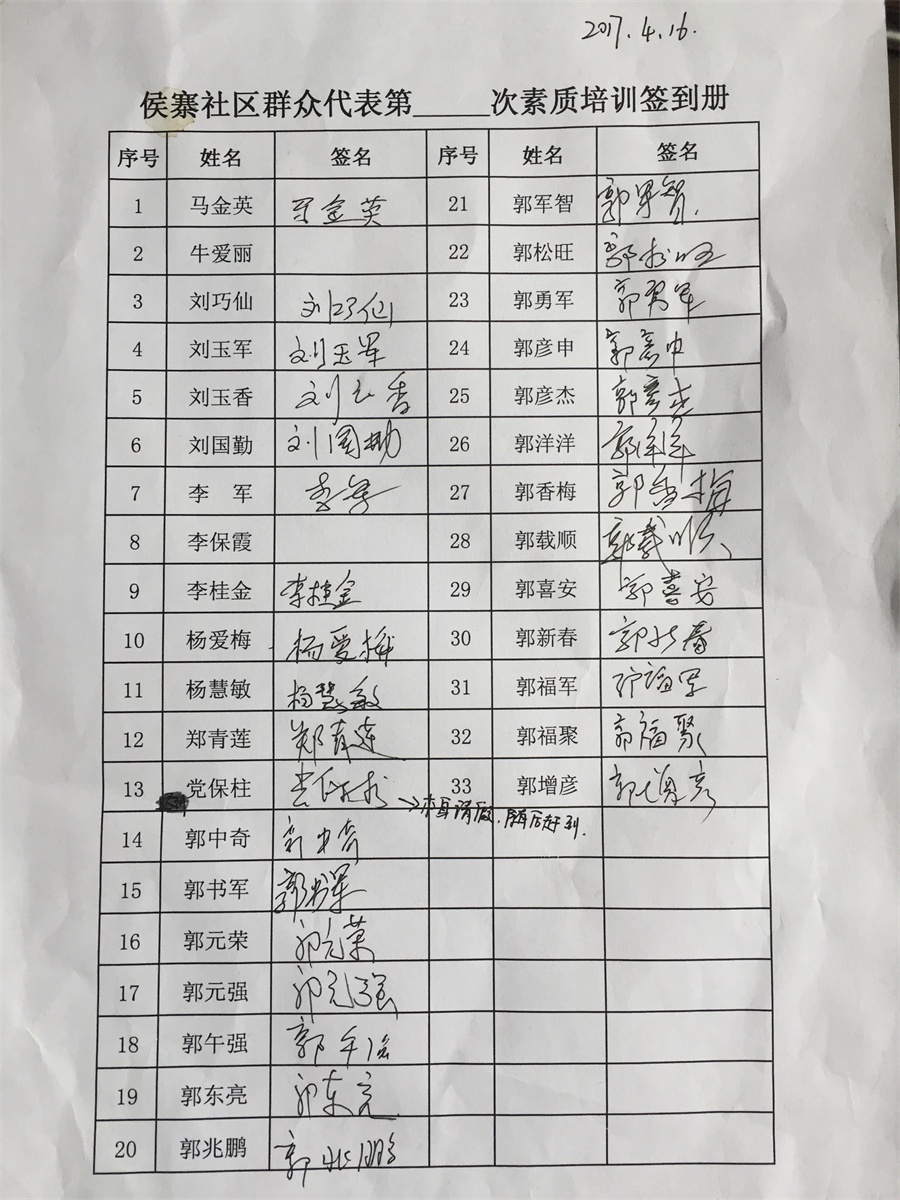 2017.4.16.
侯寨社区群众代表第______次素质培训签到册
序号 姓名 签名 序号 姓名 签名
1 马金英 马金英 21 郭军智 郭军智
2 牛爱丽 22 郭松旺 郭松旺
3 刘巧仙 刘巧仙 23 郭勇军 郭勇军
4 刘玉军 刘玉军 24 郭彦申 郭彦申
5 刘玉香 刘玉香 25 郭彦杰 郭彦杰
6 刘国勤 刘国勤 26 郭洋洋 郭洋洋
7 李 军 李军 27 郭香梅 郭香梅
8 李保霞 28 郭载顺 郭载顺
9 李桂金 李桂金 29 郭喜安 郭喜安
10 杨爱梅 杨爱梅 30 郭新春 郭新春
11 杨慧敏 杨慧敏 31 郭福军 郭福军
12 郑青莲 郑青莲 32 郭福聚 郭福聚
13 党保柱 党保柱 33 郭增彦 郭增彦
请假.随后赶到.
14 郭中奇 郭中奇
15 郭书军 郭书军
16 郭元荣 郭元荣
17 郭元强 郭元强
18 郭午强 郭午强
19 郭东亮 郭东亮
20 郭兆鹏 郭兆鹏